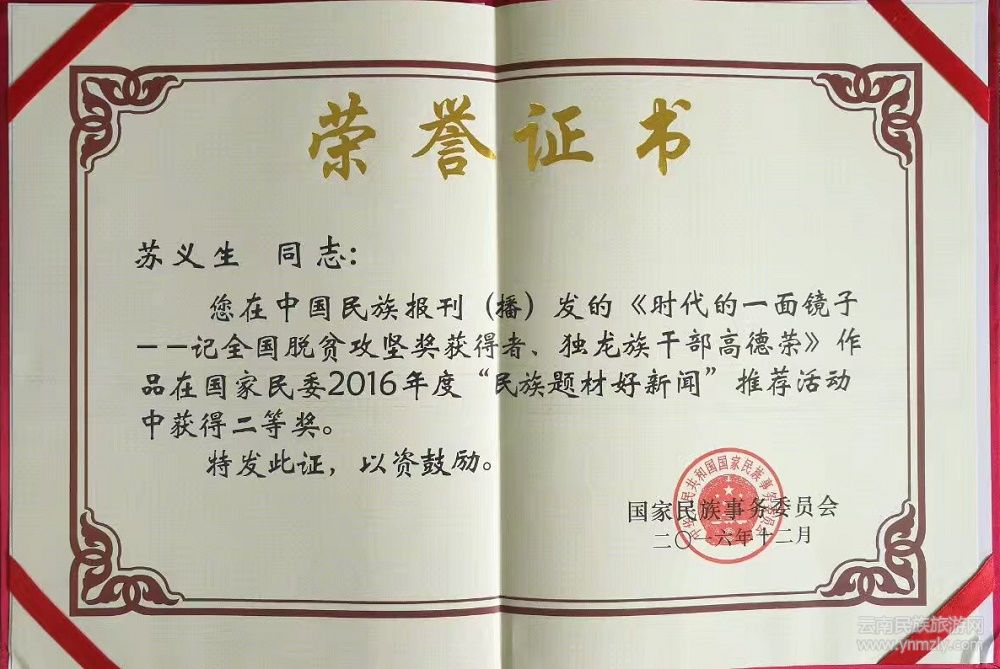 荣誉证书
苏义生 同志：
您在中国民族报刊（播）发的《时代的一面镜子
——记全国脱贫攻坚奖获得者、独龙族干部高德荣》作
品在国家民委2016年度“民族题材好新闻”推荐活动
中获得二等奖。
特发此证，以资鼓励。
中华人民共和国国家民族事务委员会
国家民族事务委员会
二〇一六年十二月
云南民族旅游网
www.ynmzly.com